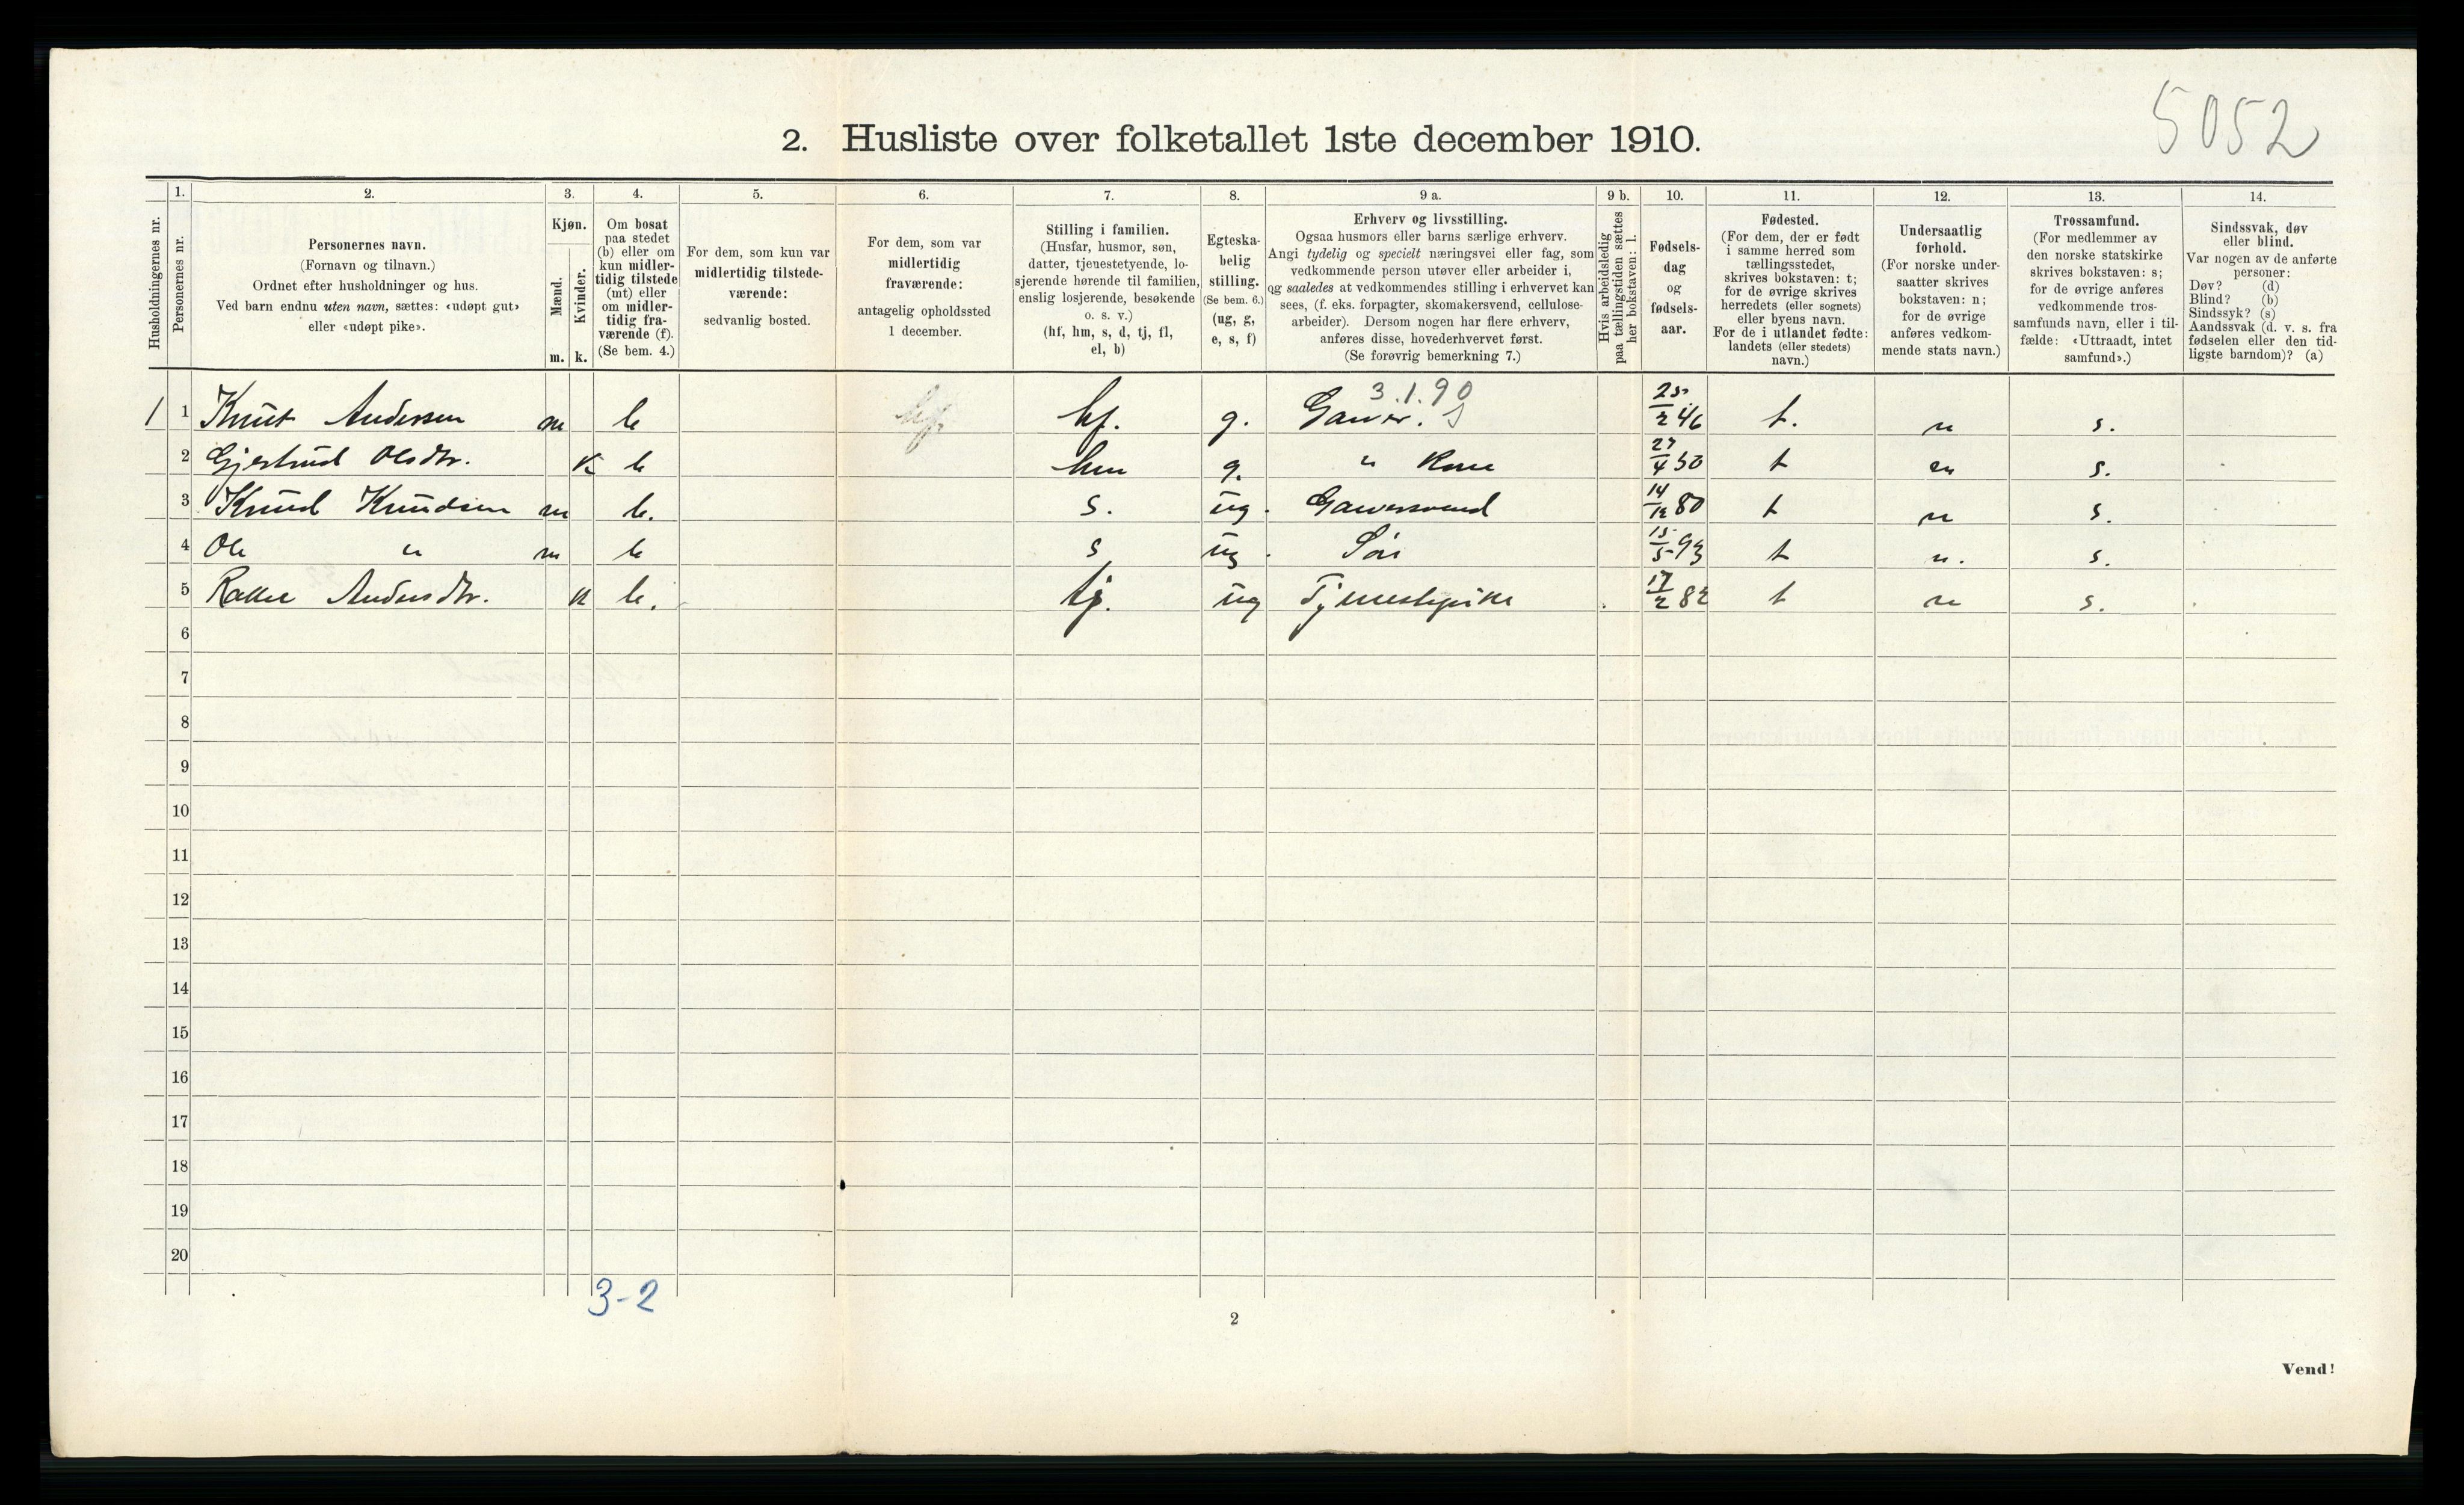 5052
2. Husliste over folketallet 1ste december 1910.
Husholdningernes nr.
1.
Personernes nr.
2.
Personernes navn.
(Fornavn og tilnavn.)
Ordnet efter husholdninger og hus.
Ved barn endnu uten navn, sættes: «udøpt gut»
eller «udøpt pike».
3.
Kjøn.
Mænd.
Kvinder.
m. k.
4.
Om bosat
paa stedet
(b) eller om
kun midler-
tidig tilstede
(mt) eller
om midler-
tidig fra-
værende (f).
(Se bem. 4.)
5.
For dem, som kun var
midlertidig tilstede-
værende:
sedvanlig bosted.
6.
For dem, som var
midlertidig
fraværende:
antagelig opholdssted
1 december.
7.
Stilling i familien.
(Husfar, husmor, søn,
datter, tjenestetyende, lo-
sjerende hørende til familien,
enslig losjerende, besøkende
o. s. v.)
(hf, hm, s, d, tj, fl,
el, b)
8.
Egteska-
belig
stilling.
(Se bem. 6.)
(ug, g,
e, s, f)
9 a.
Erhverv og livsstilling.
Ogsaa husmors eller barns særlige erhverv.
Angi tydelig og specielt næringsvei eller fag, som
vedkommende person utøver eller arbeider i,
og saaledes at vedkommendes stilling i erhvervet kan
sees, (f. eks. forpagter, skomakersvend, cellulose-
arbeider). Dersom nogen har flere erhverv,
anføres disse, hovederhvervet først.
(Se forøvrig bemerkning 7.)
9 b.
Hvis arbeidsledig
paa tællingstiden sættes
her bokstaven: l.
10.
Fødsels-
dag
og
fødsels-
aar.
11.
Fødested.
(For dem, der er født
i samme herred som
tællingsstedet,
skrives bokstaven: t;
for de øvrige skrives
herredets (eller sognets)
eller byens navn.
For de i utlandet fødte:
landets (eller stedets)
navn.)
12.
Undersaatlig
forhold.
(For norske under-
saatter skrives
bokstaven: n;
for de øvrige
anføres vedkom-
mende stats navn.)
13.
Trossamfund.
(For medlemmer av
den norske statskirke
skrives bokstaven: s;
for de øvrige anføres
vedkommende tros-
samfunds navn, eller i til-
fælde: «Uttraadt, intet
samfund».)
14.
Sindssvak, døv
eller blind.
Var nogen av de anførte
personer:
Døv? (d)
Blind? (b)
Sindssyk? (s)
Aandssvak (d. v. s. fra
fødselen eller den tid-
ligste barndom)? (a)
3.1.90
1 1 Knut Andersen m b hf. g. Garver. 25/2 46 t. n s.
2 Gjertrud Olsdtr. k b hm g. " Kone 27/4 50 t n s.
3 Knud Knudsen m b. s. ug. Garversvend 14/12 80 t n s.
4 Ole " m b s ug. Søn 15/5 93 t n. s.
5 Andersdtr. k b. tj. ug Tjenestepike 17/2 82 t n s.
6
7
8
9
10
11
12
13
14
15
16
17
18
19
20
3-2
2
Vend!